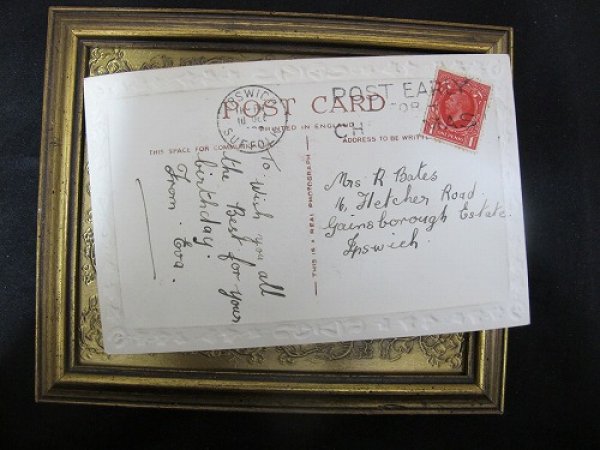 IPSWICH
16 DEC
SUFFOLK
POST EARLY
FOR
CH AS
POST CARD
PRINTED IN ENGLAND
THIS SPACE FOR
ADDRESS TO BE
To wish you all
the Best for your
birthday.
From Eva.
THIS IS A REAL PHOTOGRAPH
Mrs R Bates
16, Fletcher Road
Gainsborough Estate.
Ipswich.
1 1